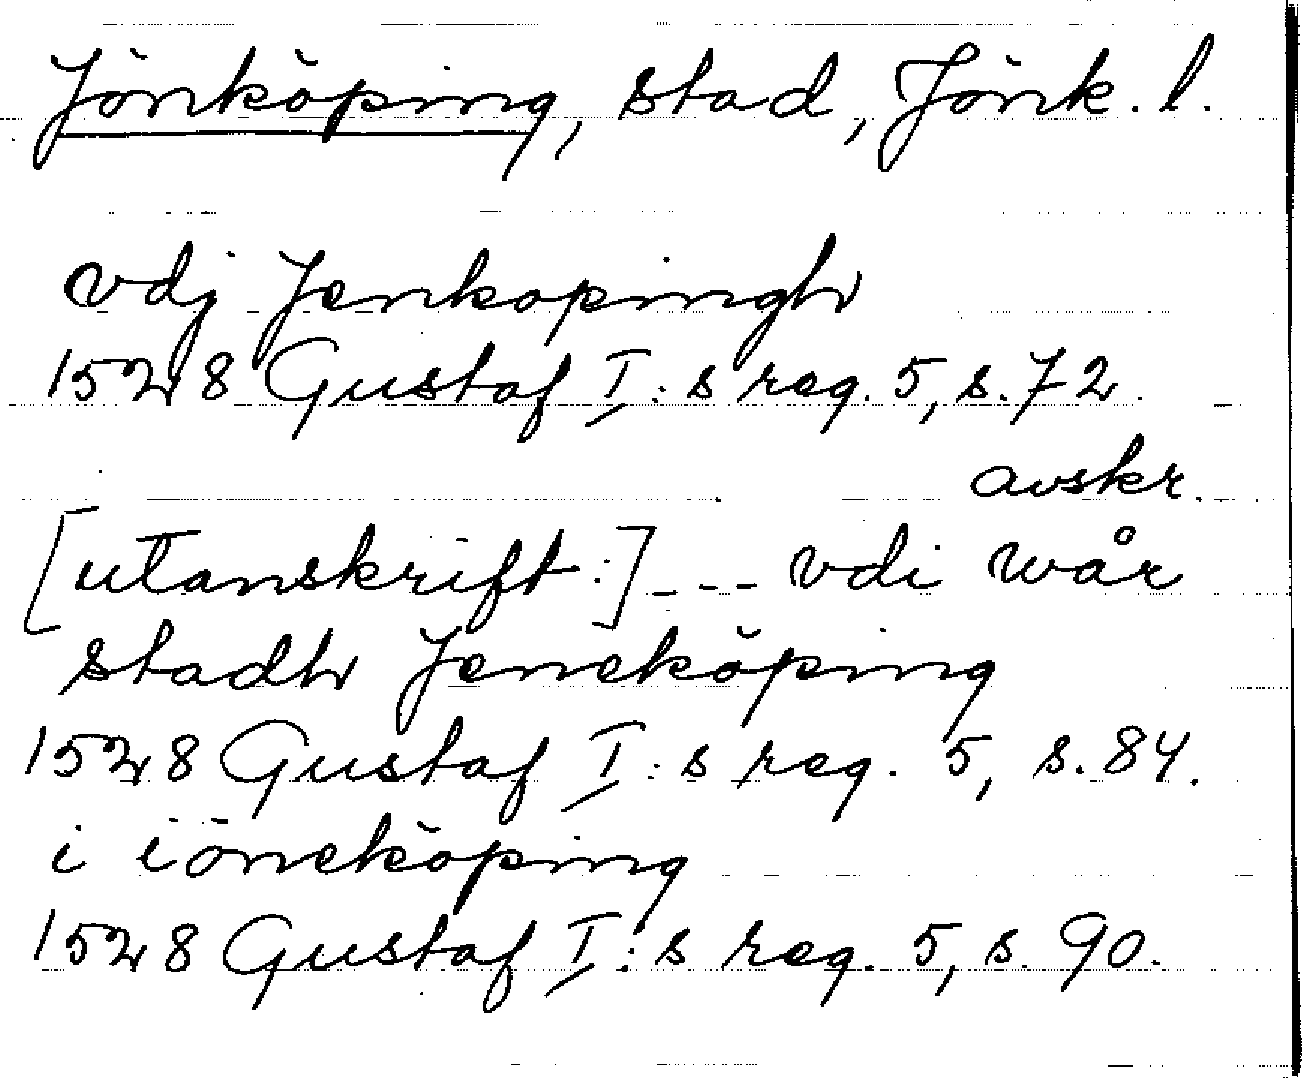 Jönköping, stad, Jönk. l.
vdj Jenkopingh
1528 Gustaf I:s reg. 5, s. 72
avskr.
[utanskrift:] --- vdi wår
stadh Jeneköping
1528 Gustaf I:s reg. 5, s. 84.
i iöneköping
1528 Gustaf I:s reg. 5, s. 90.